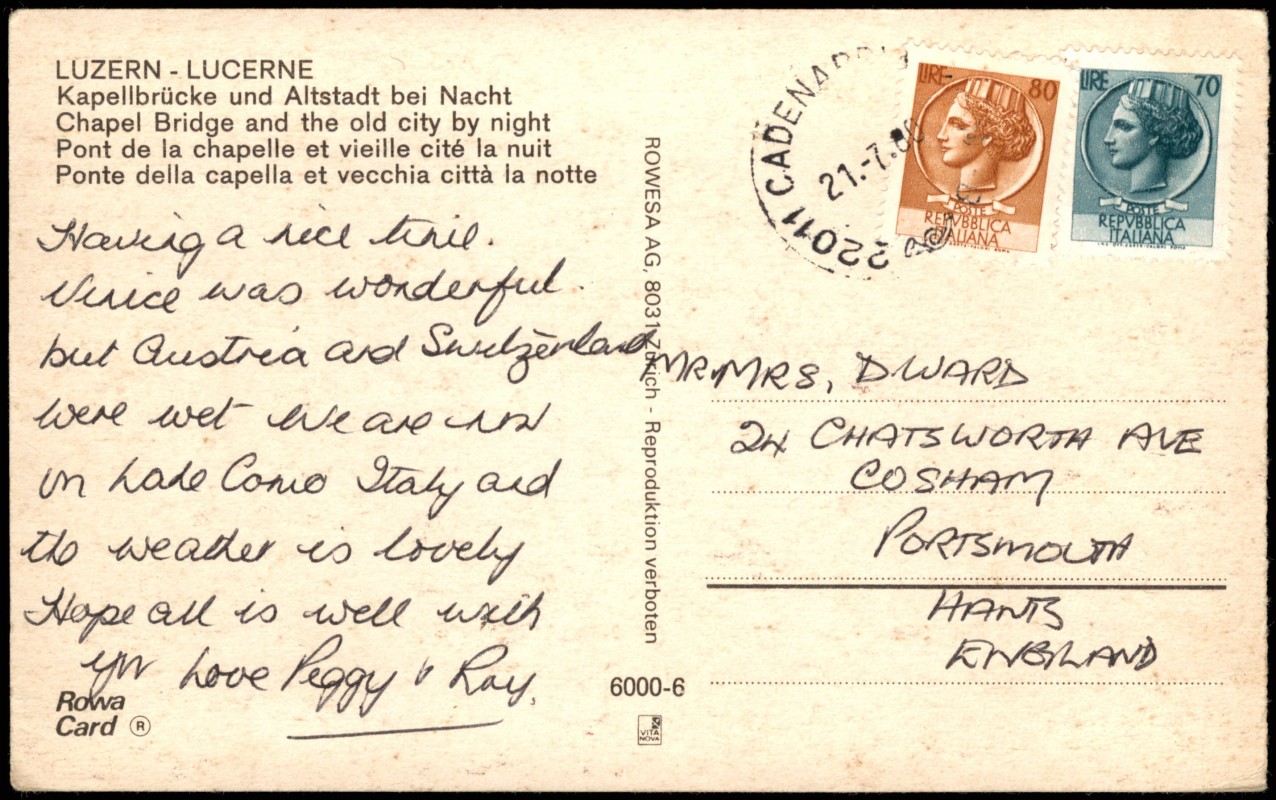 LUZERN - LUCERNE
Kapellbrücke und Altstadt bei Nacht
Chapel Bridge and the old city by night
Pont de la chapelle et vieille cité la nuit
Ponte della capella et vecchia città la notte
Having a nice time.
Venice was wonderful.
but Austria and Switzenland
were wet We are now
on Lake Como Italy and
the weather is lovely
Hope all is well with
you Love Peggy & Ray.
Rowa
Card ®
ROWESA AG, 8031 Zürich - Reproduktion verboten
6000-6
VITA
NOVA
22011 CADENABBIA
21.-7.80
LIRE 80
POSTE
REPVBBLICA
ITALIANA
LIRE 70
POSTE
REPVBBLICA
ITALIANA
MR, MRS, D WARD
24 CHATSWORTH AVE
COSHAM
PORTSMOUTH
HANTS
ENGLAND